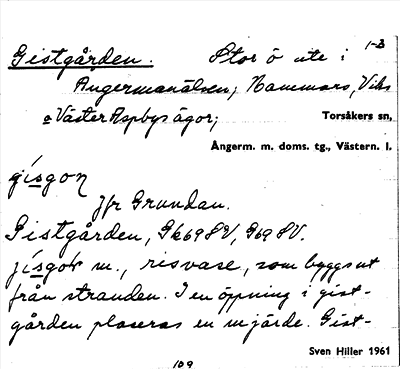 Gistgården. Stor ö ute i 1-3
Ångermanälven; Hammars, Viks
o Väster Aspbys ägor;
Torsåkers sn,
Ångerm. m. doms. tg., Västern. l.
Jfr Grundan.
Gistgården, Gk69 SV, G69 SV.
m., risvase, som byggs ut
från stranden. I en öppning i gist-
gården placeras en mjärde. Gist-
Sven Hiller 1961
109